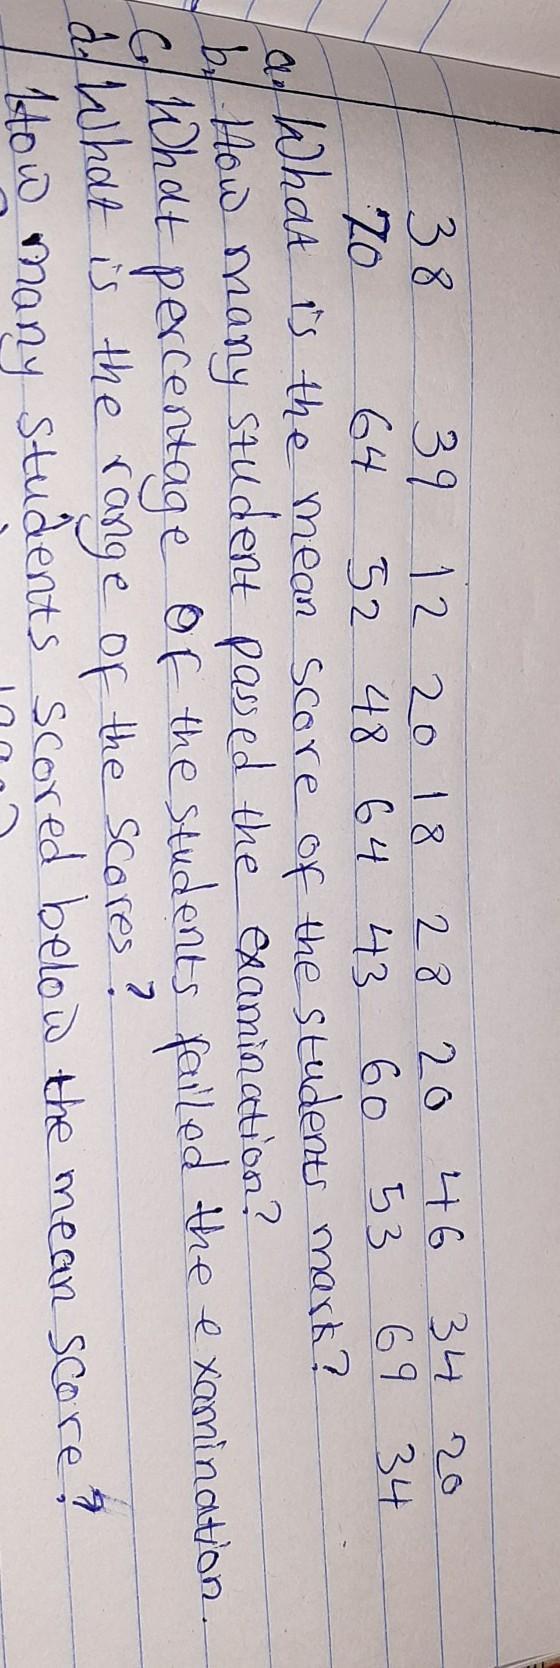 38 39 12 20 18 28 20 46 34 20
70 64 52 48 64 43 60 53 69 34
a. What is the mean score of the students mark?
b. How many student passed the examination?
c. What percentage of the students failed the examination.
d. What is the range of the scores?
How many students scored below the mean score?